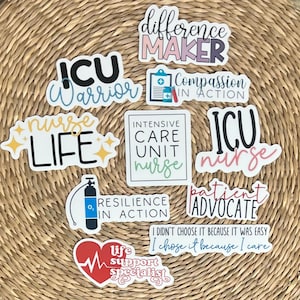 difference
MAKER
ICU
Warrior
Compassion
IN ACTION
nurse
LIFE
INTENSIVE
CARE
UNIT
nurse
ICU
nurse
O₂
RESILIENCE
IN ACTION
patient
ADVOCATE
I DIDN'T CHOOSE IT BECAUSE IT WAS EASY
I chose it because I care
life
support
specialist